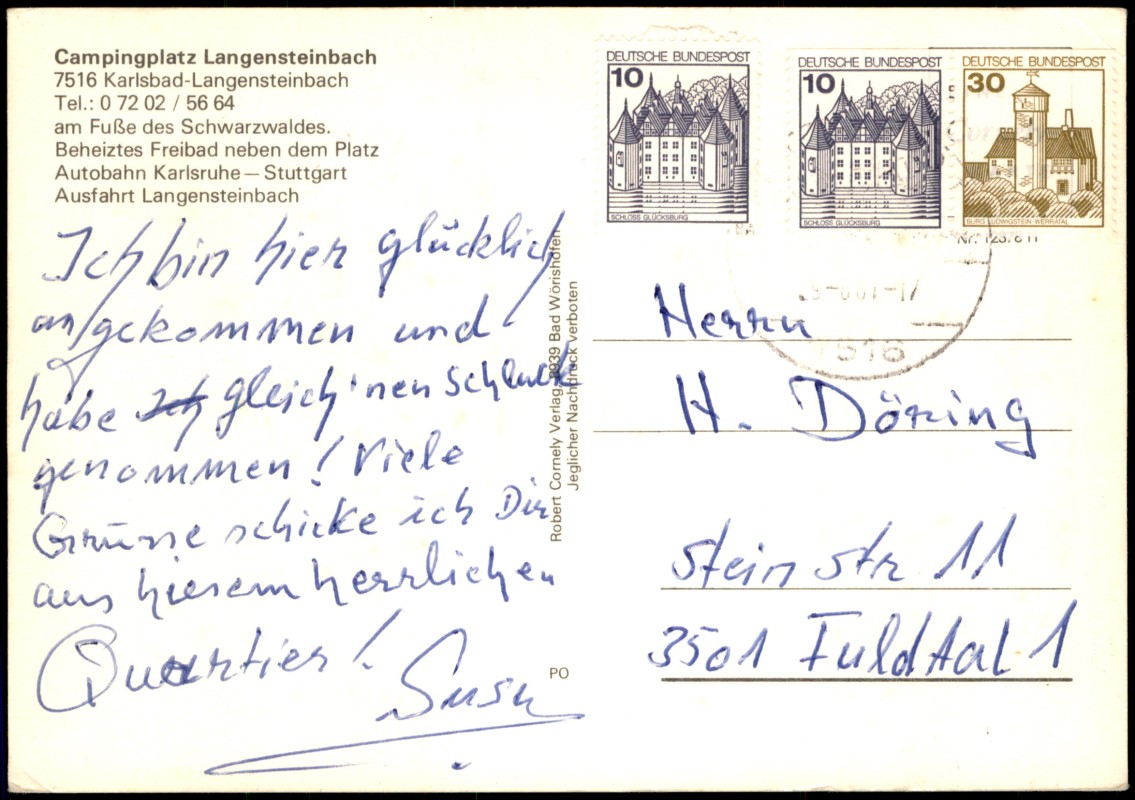 Campingplatz Langensteinbach
7516 Karlsbad-Langensteinbach
Tel.: 0 72 02 / 56 64
am Fuße des Schwarzwaldes.
Beheiztes Freibad neben dem Platz
Autobahn Karlsruhe – Stuttgart
Ausfahrt Langensteinbach
Ich bin hier glücklich
angekommen und
habe ich gleich 'nen Schluck
genommen! Viele
Grüsse schicke ich Dir
aus hiesem herrlichen
Quartier!
Susu
Robert Cornely Verlag, 8939 Bad Wörishofen
Jeglicher Nachdruck verboten
PO
DEUTSCHE BUNDESPOST
10
SCHLOSS GLÜCKSBURG
DEUTSCHE BUNDESPOST
10
SCHLOSS GLÜCKSBURG
DEUTSCHE BUNDESPOST
30
BURG LUDWIGSTEIN·WERRATAL
7516
Herrn
H. Döring
Steinstr 11
3501 Fuldtal 1